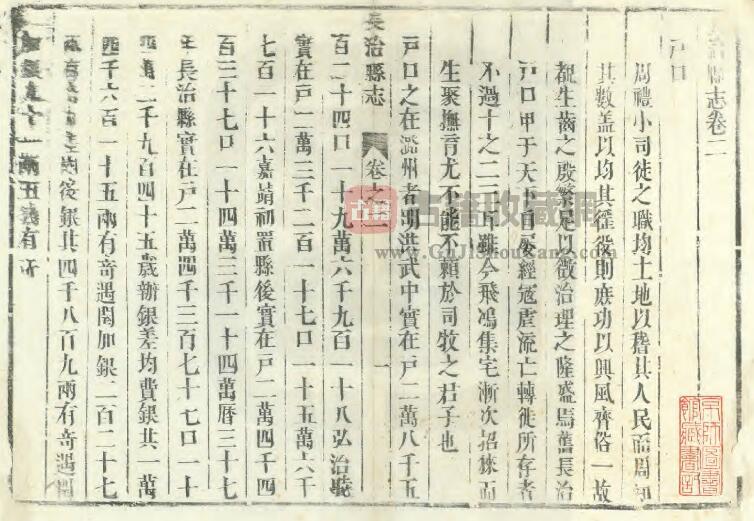 治縣志卷二
戸口
周禮小司徒之職均土地以稽其人民而周知
其數蓋以均其徭役則庶功以興風齊俗一故
觀生齒之殷繁足以徵治理之隆盛焉舊長治
戸口甲于天下自屡經寇虐流亡轉徙所存者
不過十之二三耳雖今飛鴻集宅漸次招徠而
生聚撫育尤不能不賴於司牧之君子也
戸口之在潞州者明洪武中實在戸二萬八千五
長治縣志
卷之二
一
百二十四口一十九萬六千九百一十八弘治
實在戸一萬三千二百一十七口一十五萬六千
七百一十六嘉靖初置縣後實在戸二萬四千四
百三十七口一十四萬三千一十四萬曆三十七
年長治縣實在戸一萬四千三百七十七口一十
四萬二千九百四十五歲辦銀差均費銀共一萬
四千六百一十五兩有奇遇閏加銀二百二十七
後銀共四千八百九兩有奇遇閏
十一兩五錢有奇
京師圖書館藏書記
古籍
古籍收藏网
www.GuJiShouCang.com